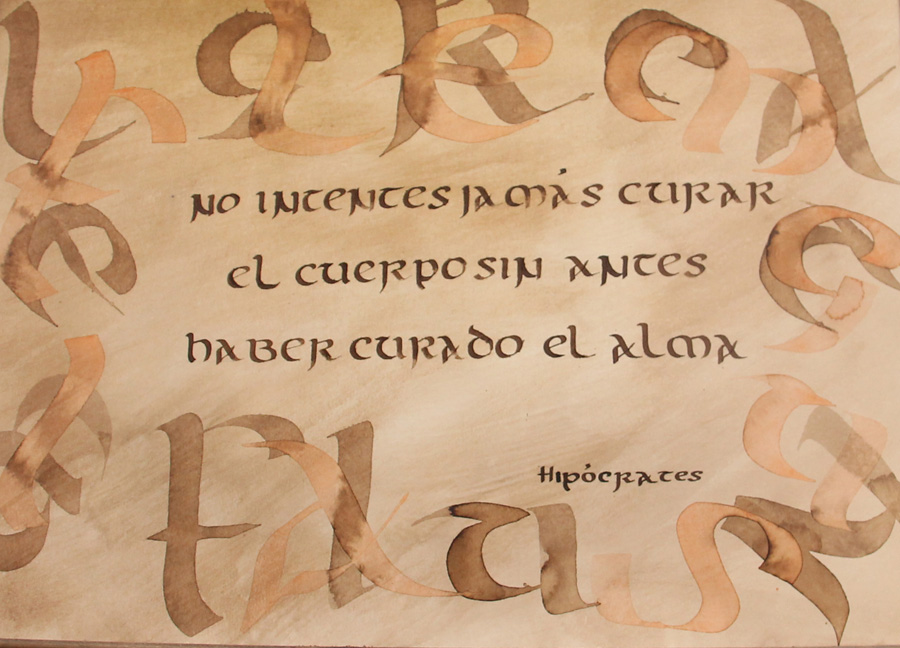 No intentes jamás curar
el cuerpo sin antes
haber curado el alma
Hipócrates